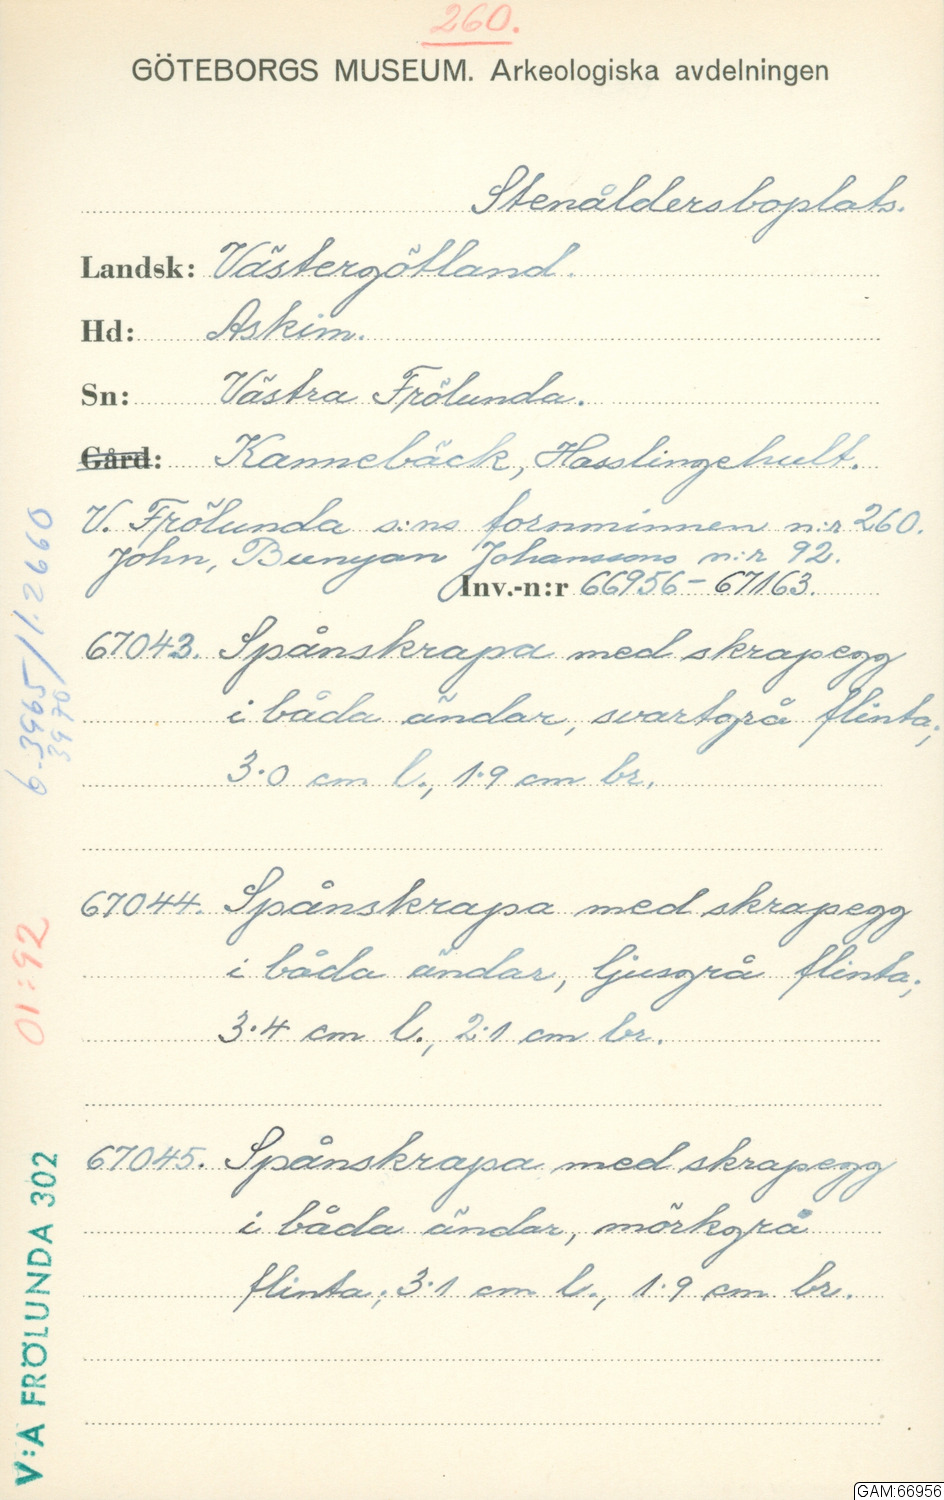 260.
GÖTEBORGS MUSEUM. Arkeologiska avdelningen
Stenåldersboplats.
Landsk: Västergötland.
Hd: Askim.
Sn: Västra Frölunda.
Gård: Kannebäck, Hasslingehult.
V. Frölunda s:ns fornminnen n:r 260.
John, Bunyan Johanssons n:r 92.
Inv.-n:r 66956-67163.
67043. Spånskrapa med skrapegg
i båda ändar, svartgrå flinta;
3.0 cm l., 1.9 cm br.
67044. Spånskrapa med skrapegg
i båda ändar, ljusgrå flinta;
3.4 cm l., 2.1 cm br.
67045. Spånskrapa med skrapegg
i båda ändar, mörkgrå
flinta; 3.1 cm l., 1.9 cm br.
6-3965/1.2660
3970
01:92
V:A FRÖLUNDA 302
GAM:66956